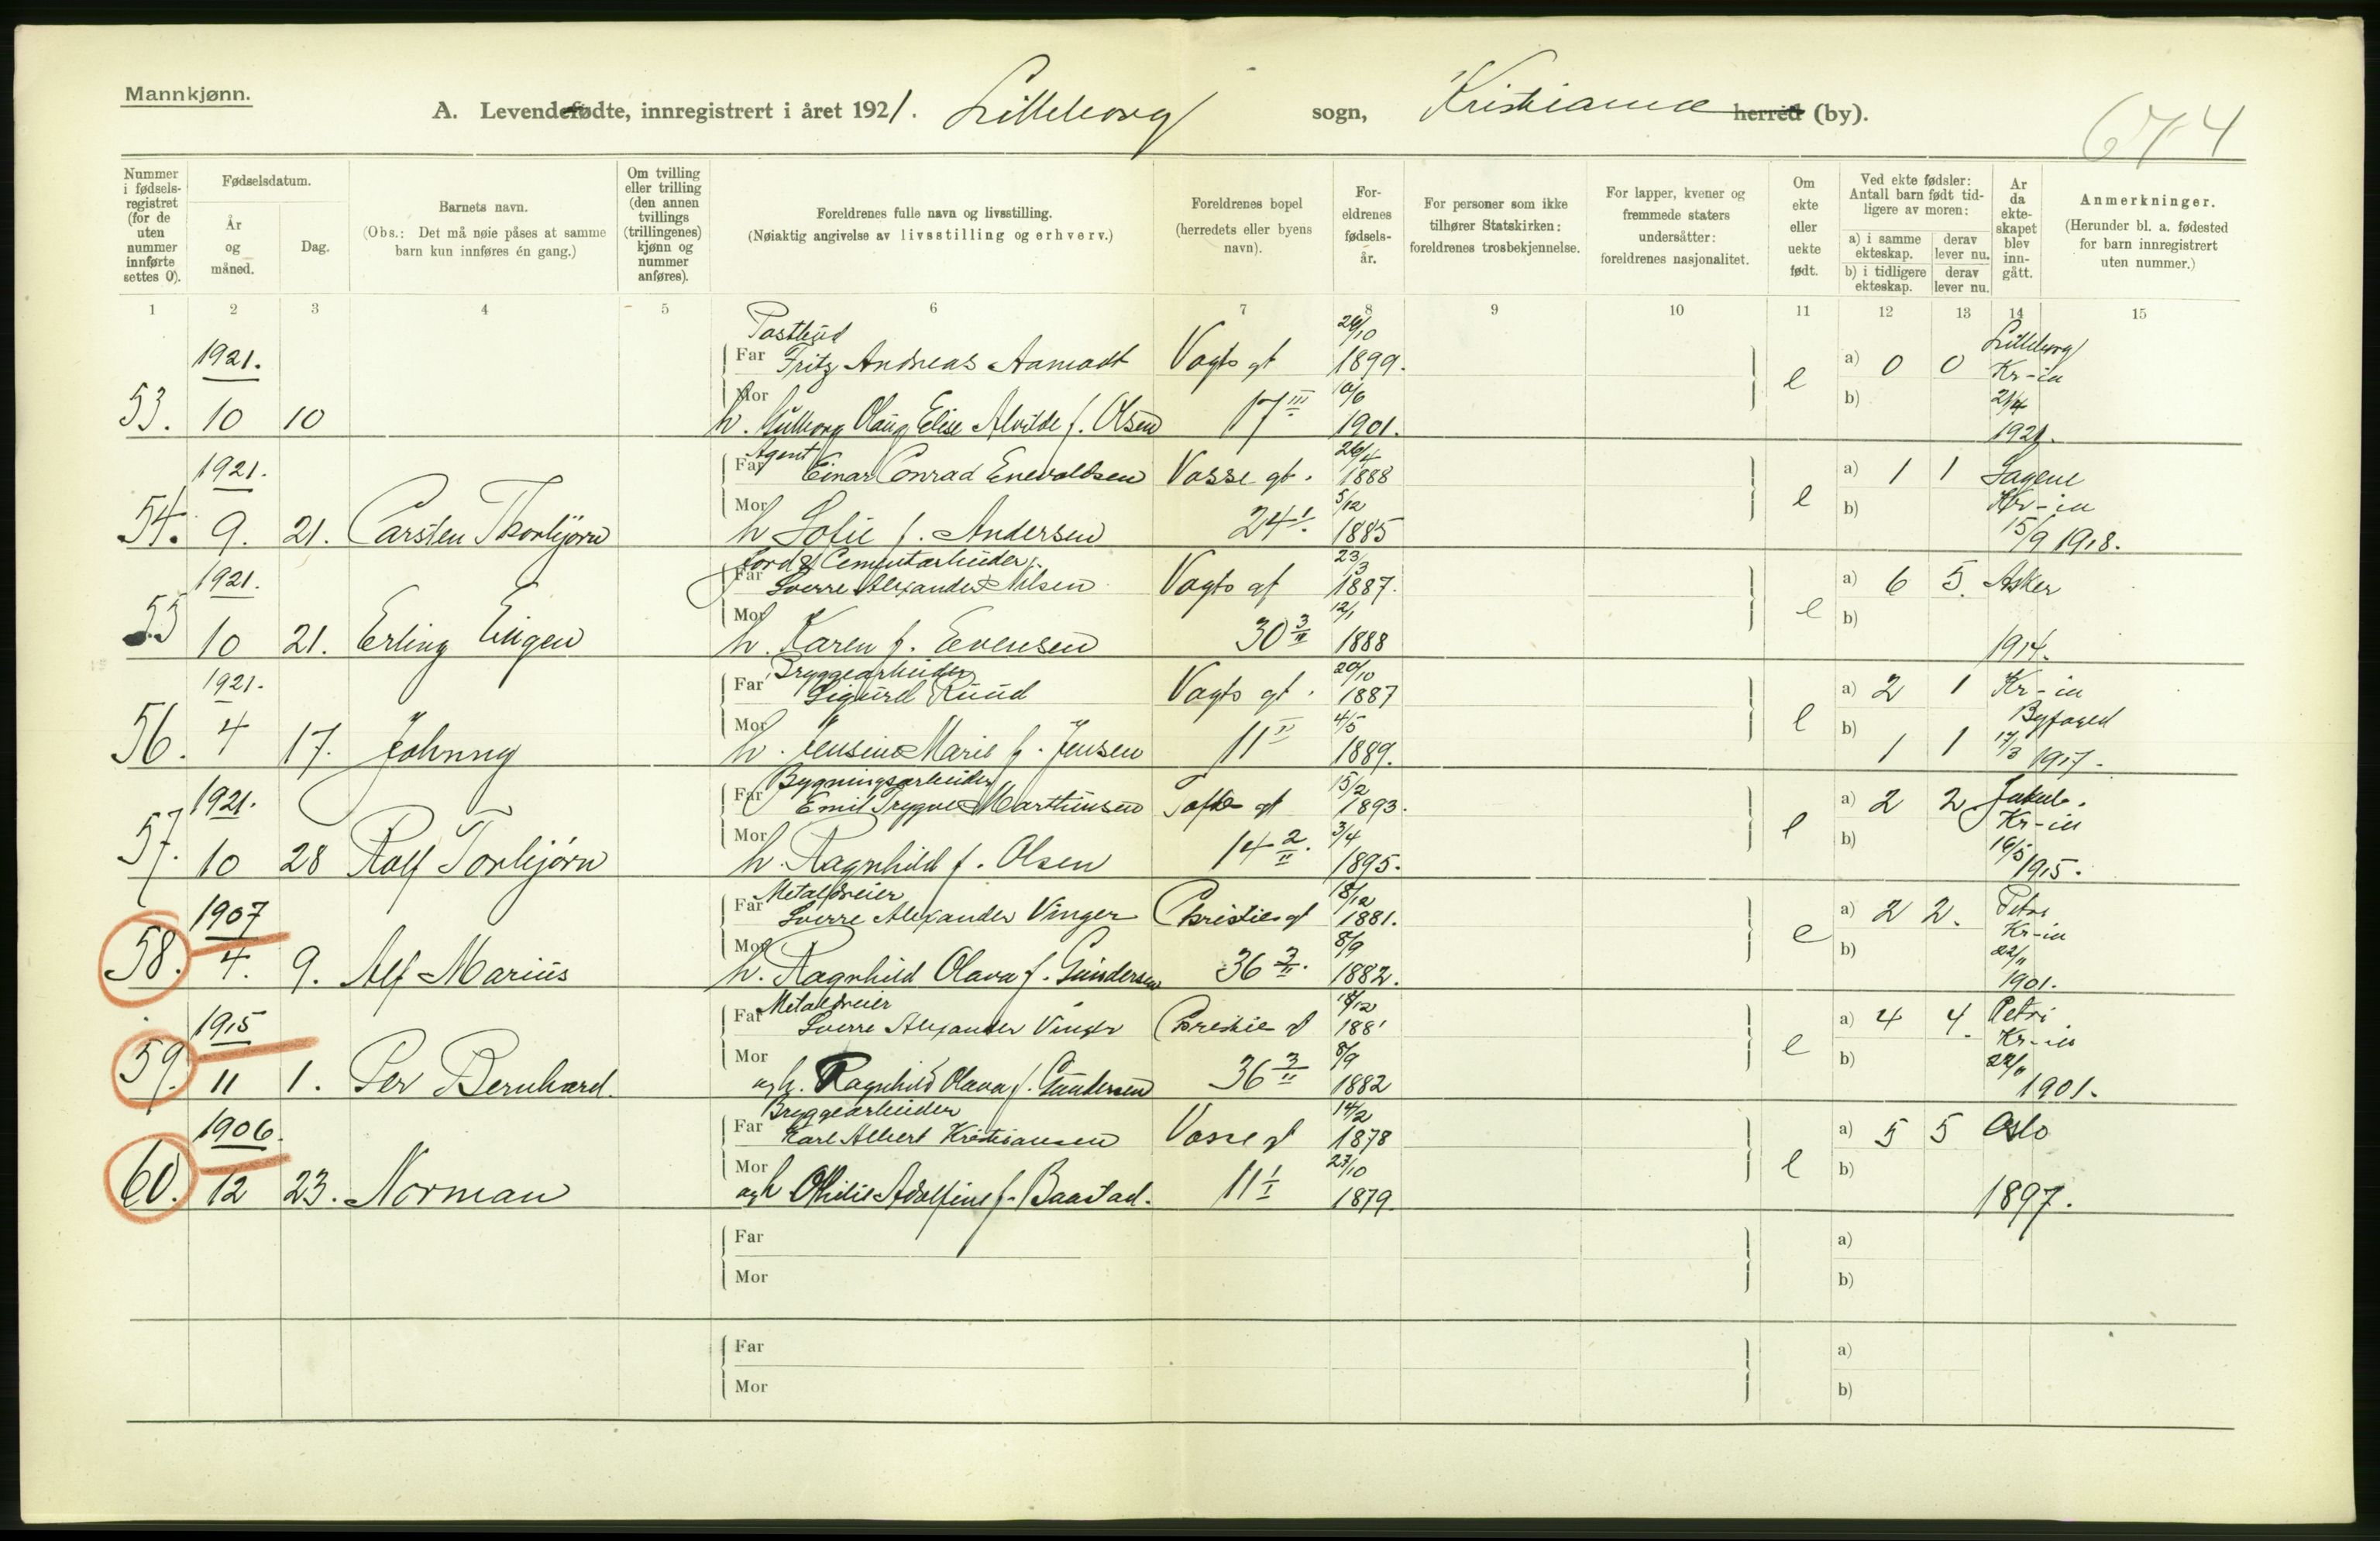 Mannkjønn.
A. Levendefødte, innregistrert i året 1921. Lilleborg sogn, Kristiania herred (by).
674
Nummer i fødsels-registret (for de uten nummer innførte settes 0).
Fødselsdatum.
År og måned.
Dag.
Barnets navn.
(Obs.: Det må nøie påses at samme barn kun innføres én gang.)
Om tvilling eller trilling (den annen tvillings (trillingenes) kjønn og nummer anføres).
Foreldrenes fulle navn og livsstilling.
(Nøiaktig angivelse av livsstilling og erhverv.)
Foreldrenes bopel
(herredets eller byens navn).
For-eldrenes fødsels-år.
For personer som ikke tilhører Statskirken: foreldrenes trosbekjennelse.
For lapper, kvener og fremmede staters undersåtter: foreldrenes nasjonalitet.
Om ekte eller uekte født.
Ved ekte fødsler: Antall barn født tid-ligere av moren:
a) i samme ekteskap.
derav lever nu.
b) i tidligere ekteskap.
derav lever nu.
År da ekte-skapet blev inn-gått.
Anmerkninger.
(Herunder bl. a. fødested for barn innregistrert uten nummer.)
1 2 3 4 5 6 7 8 9 10 11 12 13 14 15
1921. Postbud 24/10 Lilleborg
Far Fritz Andreas Aamodt Vogts gt 1899. e a) 0 0 Kr-ia
Mor 10/6 b) 21/4
53. 10 10 h. Gulborg Olaug Elise Alvilde f. Olsen 17 III 1901. 1921.
1921. Agent 26/4
Far Einar Conrad Enevoldsen Vosse gt. 1888 e a) 1 1 Sagene
Mor 5/12 b) Kr-ia
54. 9. 21. Carsten Thorbjørn h Sofie f. Andersen 24 I. 1885 15/9 1918.
1921. Jord & Cementarbeider 23/3
Far Sverre Alexander Nilsen Vogts gt 1887. e a) 6 5. Asker
Mor 12/1 b)
55 10 21. Erling Eugen h. Karen f. Evensen 30 3/II 1888 1914.
1921. Bryggearbeider 20/10
Far Sigurd Ruud Vogts gt. 1887 e a) 2 1 Kr-ia
Mor 4/5 b) 1 1 Byfoged
56. 4 17. Johnny h. Jensine Marie f. Jensen 11 II 1889. 17/3 1917.
1921. Bygningsarbeider 15/2
Far Emil Trygve Marthinsen Tofte gt 1893. e a) 2 2 Jakob.
Mor 3/4 b) Kr-ia
57. 10 28 Rolf Torbjørn h. Ragnhild f. Olsen 14 2/II. 1895. 16/5 1915.
1907 Metaldreier 18/12
Far Sverre Alexander Vinger Christies gt 1881. e a) 2 2. Petri
Mor 8/9 b) Kr-ia
58. 4. 9. Alf Marius h. Ragnhild Olava f. Gundersen 36 3/II. 1882. 22/11 1901.
1915 Metaldreier 18/12
Far Sverre Alexander Vinger Christie gt 1881 e a) 4 4. Petri
Mor 8/9 b) Kr-ia
59. 11 1. Per Bernhard. og h. Ragnhild Olava f. Gundersen 36 3/II 1882 22/11 1901.
1906. Bryggearbeider 14/2
Far Karl Albert Kristiansen Vosse gt 1878 e a) 5 5 Oslo
Mor 23/10 b)
60. 12 23. Norman og h Othilie Adolfine f. Baastad. 11 1/I 1879. 1897.
Far a)
Mor b)
Far a)
Mor b)